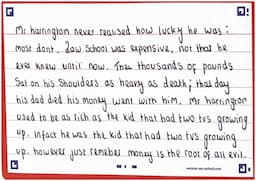 Mr harrington never reausied how lucky he was:
most dont. Law School was expensive, not that he
ever knew until now. Then thousands of pounds
Sat on his Shoulders as heavy as death; that day
his dad died his money went with him. Mr harrington
used to be as rich as the kid that had two tvs growing
up. infact he was the kid that had two tvs growing
up. however just remeber money is the root of all evil.